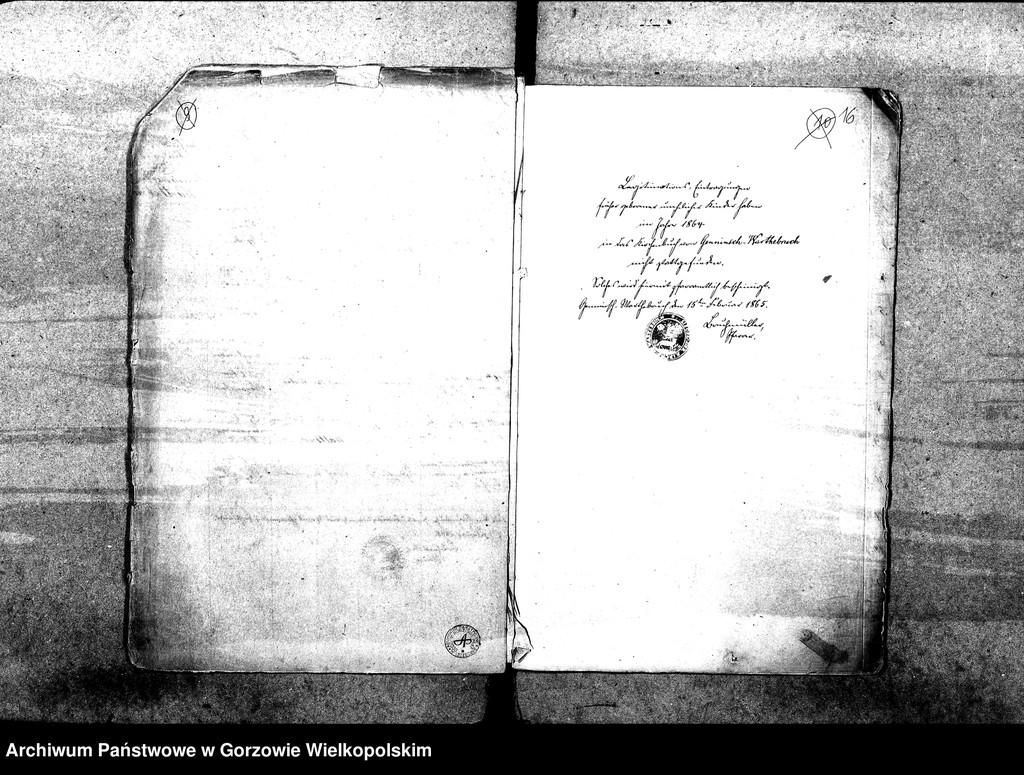 9
10 16
Legitimations-Eintragungen
früher geborner unehelicher Kinder haben
im Jahre 1864
in das Kirchenbuch von Gennin'sch-Warthebruch
nicht stattgefunden.
Solches wird hiermit pfarramtlich bescheinigt.
Genninsch-Warthebruch den 15ten Februar 1865.
Pfarrer.
Archiwum Państwowe w Gorzowie Wielkopolskim